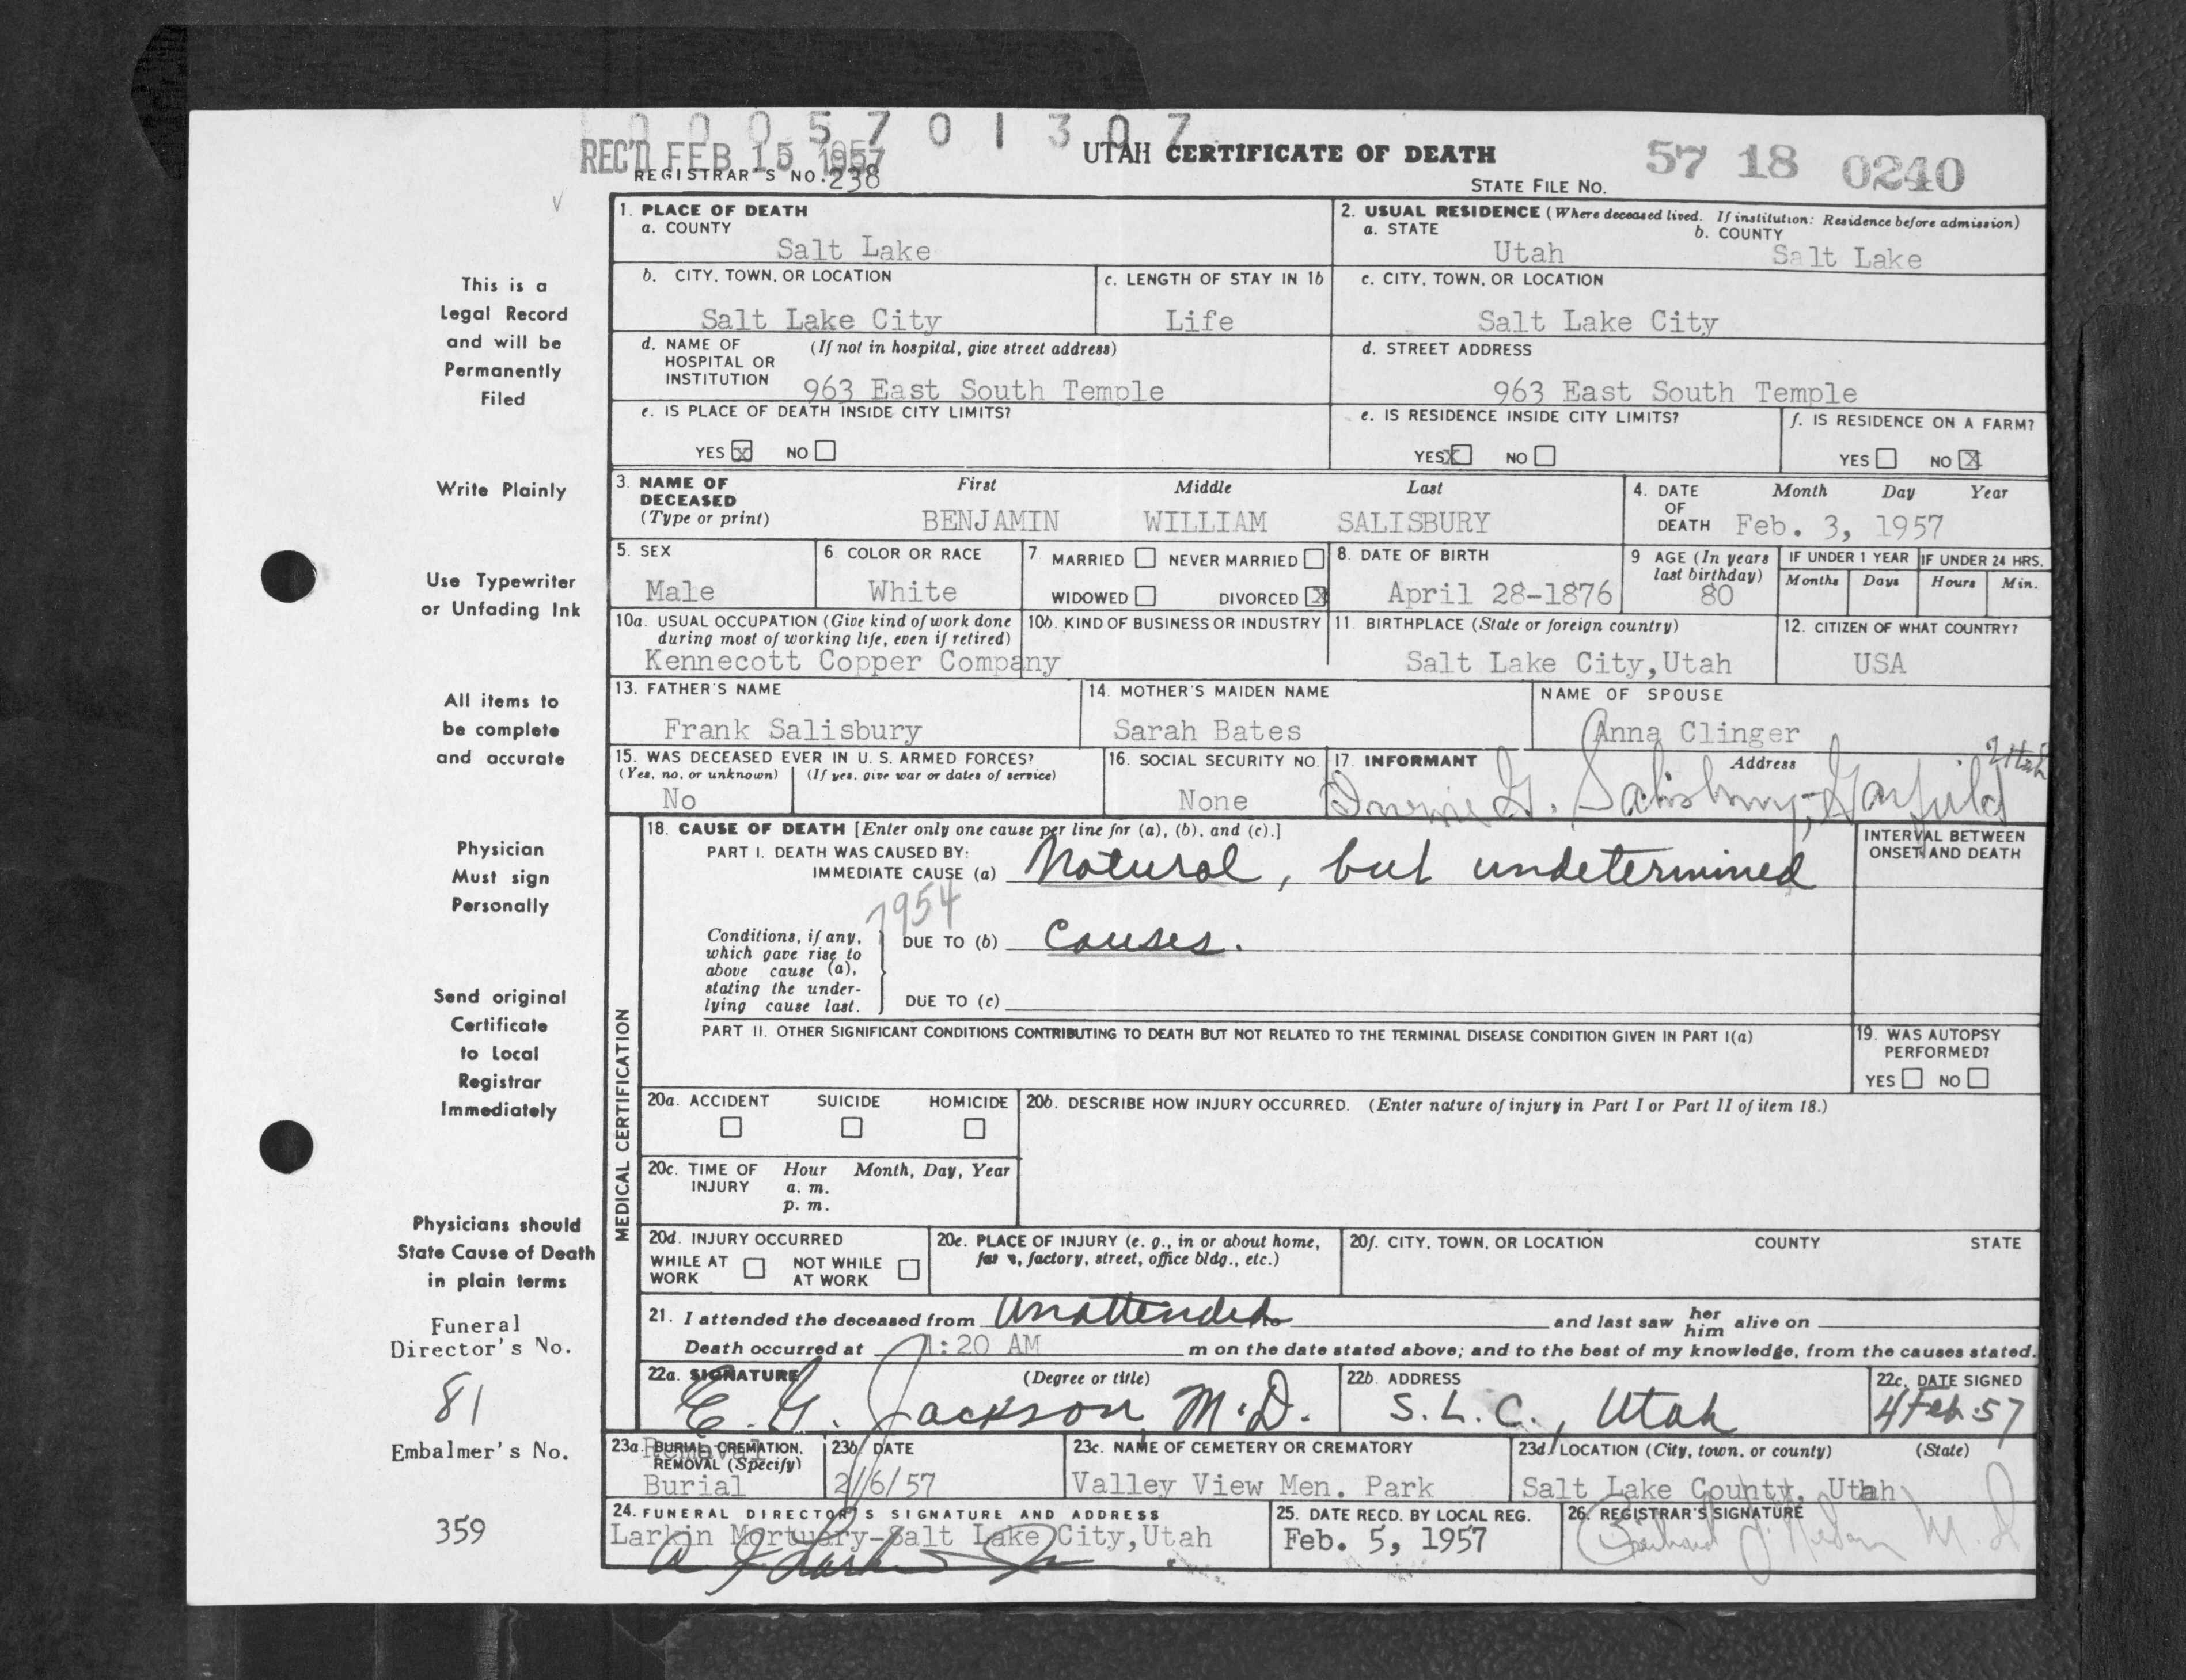 0 0 0 5 7 0 1 3 0 7
REC'D FEB 15 1957
UTAH CERTIFICATE OF DEATH
57 18 0240
REGISTRAR'S NO. 238
STATE FILE NO.
1. PLACE OF DEATH
a. COUNTY
Salt Lake
2. USUAL RESIDENCE (Where deceased lived. If institution: Residence before admission)
a. STATE
Utah
b. COUNTY
Salt Lake
b. CITY, TOWN, OR LOCATION
Salt Lake City
c. LENGTH OF STAY IN 1b
Life
c. CITY, TOWN, OR LOCATION
Salt Lake City
d. NAME OF HOSPITAL OR INSTITUTION (If not in hospital, give street address)
963 East South Temple
d. STREET ADDRESS
963 East South Temple
e. IS PLACE OF DEATH INSIDE CITY LIMITS?
YES X NO
e. IS RESIDENCE INSIDE CITY LIMITS?
YES X NO
f. IS RESIDENCE ON A FARM?
YES NO X
3. NAME OF DECEASED (Type or print)
First Middle Last
BENJAMIN WILLIAM SALISBURY
4. DATE OF DEATH Month Day Year
Feb. 3, 1957
5. SEX
Male
6. COLOR OR RACE
White
7. MARRIED NEVER MARRIED
WIDOWED DIVORCED X
8. DATE OF BIRTH
April 28-1876
9 AGE (In years last birthday)
80
IF UNDER 1 YEAR
Months Days
IF UNDER 24 HRS.
Hours Min.
10a. USUAL OCCUPATION (Give kind of work done during most of working life, even if retired)
Kennecott Copper Company
10b. KIND OF BUSINESS OR INDUSTRY
11. BIRTHPLACE (State or foreign country)
Salt Lake City,Utah
12. CITIZEN OF WHAT COUNTRY?
USA
13. FATHER'S NAME
Frank Salisbury
14. MOTHER'S MAIDEN NAME
Sarah Bates
NAME OF SPOUSE
Anna Clinger
15. WAS DECEASED EVER IN U. S. ARMED FORCES?
(Yes, no, or unknown) (If yes, give war or dates of service)
No
16. SOCIAL SECURITY NO.
None
17. INFORMANT Address
G. Salisbury, Garfield Utah
MEDICAL CERTIFICATION
18. CAUSE OF DEATH [Enter only one cause per line for (a), (b), and (c).]
PART I. DEATH WAS CAUSED BY:
IMMEDIATE CAUSE (a) Natural, but undetermined
INTERVAL BETWEEN ONSET AND DEATH
7954
Conditions, if any, which gave rise to above cause (a), stating the underlying cause last.
DUE TO (b) causes.
DUE TO (c)
PART II. OTHER SIGNIFICANT CONDITIONS CONTRIBUTING TO DEATH BUT NOT RELATED TO THE TERMINAL DISEASE CONDITION GIVEN IN PART I(a)
19. WAS AUTOPSY PERFORMED?
YES NO
20a. ACCIDENT SUICIDE HOMICIDE
20b. DESCRIBE HOW INJURY OCCURRED. (Enter nature of injury in Part I or Part II of item 18.)
20c. TIME OF INJURY Hour Month, Day, Year
a. m.
p. m.
20d. INJURY OCCURRED
WHILE AT WORK NOT WHILE AT WORK
20e. PLACE OF INJURY (e. g., in or about home, farm, factory, street, office bldg., etc.)
20f. CITY, TOWN, OR LOCATION COUNTY STATE
21. I attended the deceased from Unattended to and last saw her him alive on
Death occurred at 1:20 AM m on the date stated above; and to the best of my knowledge, from the causes stated.
22a. SIGNATURE (Degree or title)
E. G. Jackson M.D.
22b. ADDRESS
S.L.C., Utah
22c. DATE SIGNED
4 Feb. 57
23a. BURIAL, CREMATION, REMOVAL (Specify)
Removal
Burial
23b. DATE
2/6/57
23c. NAME OF CEMETERY OR CREMATORY
Valley View Men. Park
23d. LOCATION (City, town, or county) (State)
Salt Lake County, Utah
24. FUNERAL DIRECTOR'S SIGNATURE AND ADDRESS
Larkin Mortuary-Salt Lake City,Utah
25. DATE RECD. BY LOCAL REG.
Feb. 5, 1957
26. REGISTRAR'S SIGNATURE
M.D.
This is a
Legal Record
and will be
Permanently
Filed
Write Plainly
Use Typewriter
or Unfading Ink
All items to
be complete
and accurate
Physician
Must sign
Personally
Send original
Certificate
to Local
Registrar
Immediately
Physicians should
State Cause of Death
in plain terms
Funeral
Director's No.
81
Embalmer's No.
359